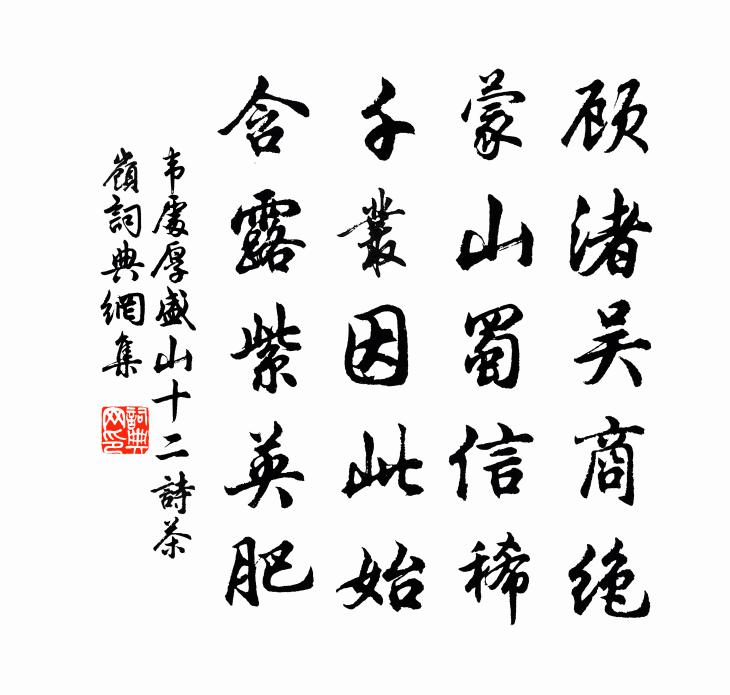 顾渚吴商绝
蒙山蜀信稀
千叢因此始
含露紫英肥
韦處厚盛山十二詩茶
嶺詞典網集
詞典网印